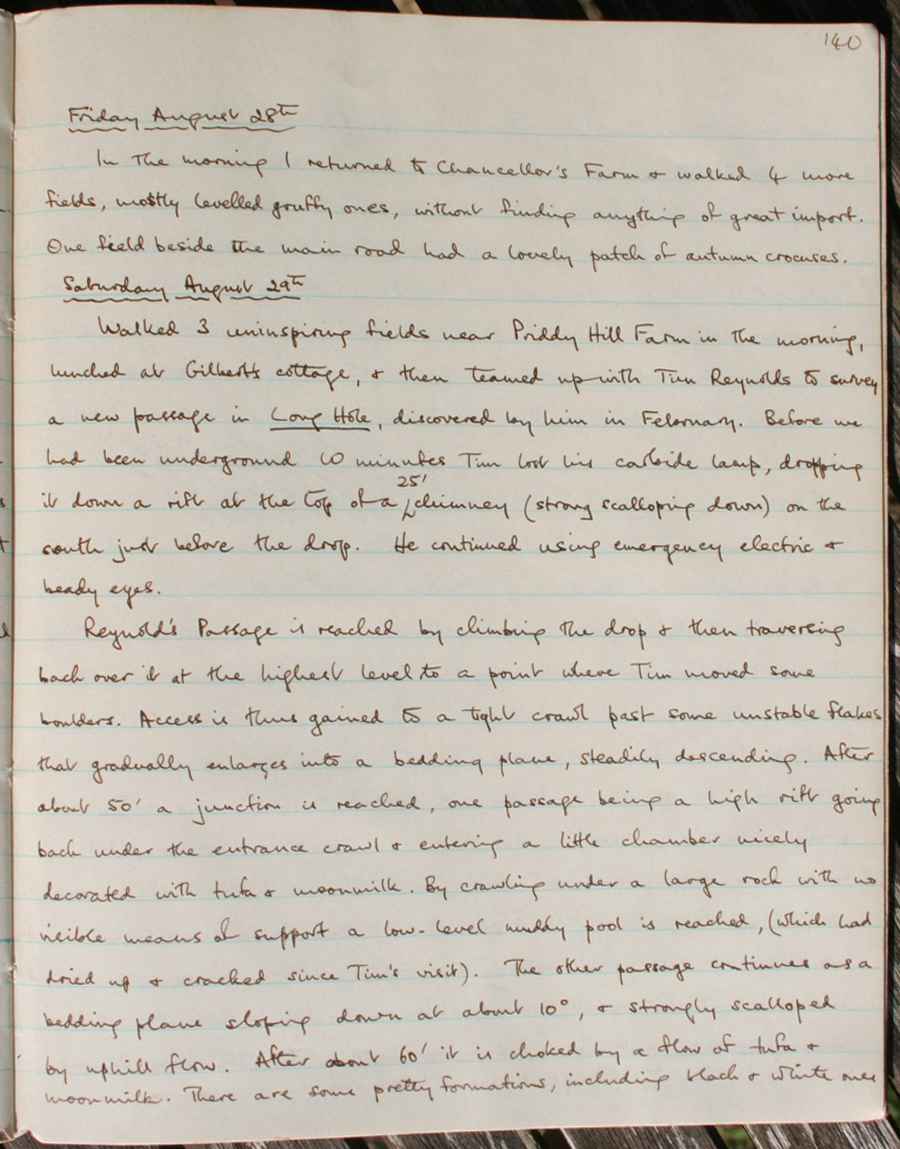 140
Friday August 28th
In the morning I returned to Chancellor's Farm & walked 4 more
fields, mostly levelled gruffy ones, without finding anything of great import.
One field beside the main road had a lovely patch of autumn crocuses.
Saturday August 29th
Walked 3 uninspiring fields near Priddy Hill Farm in the morning,
lunched at Gilbert's cottage, & then teamed up with Tim Reynolds to survey
a new passage in Long Hole, discovered by him in February. Before we
had been underground 10 minutes Tim lost his carbide lamp, dropping
it down a rift at the top of a 25' chimney (strong scalloping down) on the
south just before the drop. He continued using emergency electric &
beady eyes.
Reynold's Passage is reached by climbing the drop & then traversing
back over it at the highest level to a point where Tim moved some
boulders. Access is thus gained to a tight crawl past some unstable flakes
that gradually enlarges into a bedding plane, steadily descending. After
about 50' a junction is reached, one passage being a high rift going
back under the entrance crawl & entering a little chamber nicely
decorated with tufa & moonmilk. By crawling under a large rock with no
visible means of support a low-level muddy pool is reached, (which had
dried up & cracked since Tim's visit). The other passage continues as a
bedding plane sloping down at about 10°, & strongly scalloped
by uphill flow. After about 60' it is choked by a flow of tufa &
moonmilk. There are some pretty formations, including black & white ones